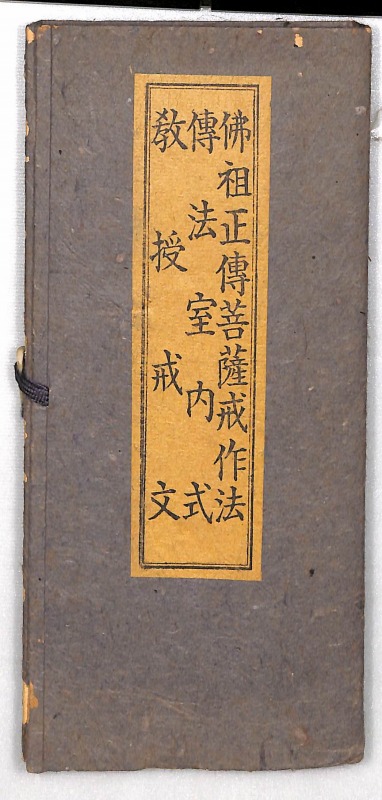 佛祖正傳菩薩戒作法
傳法室内式
教授戒文